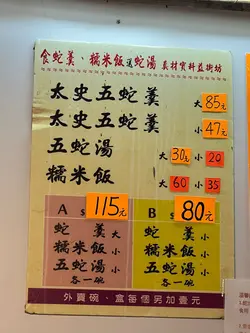 食蛇羹、糯米飯送蛇湯 真材實料益街坊
太史五蛇羹 大 85元
太史五蛇羹 小 47元
五蛇湯 大 30元 小 20
糯米飯 大 60 小 35
A $115元
蛇羹大
糯米飯小
五蛇湯小
各一碗
B $80元
蛇羹小
糯米飯小
五蛇湯小
各一碗
外賣碗、盒每個另加壹元